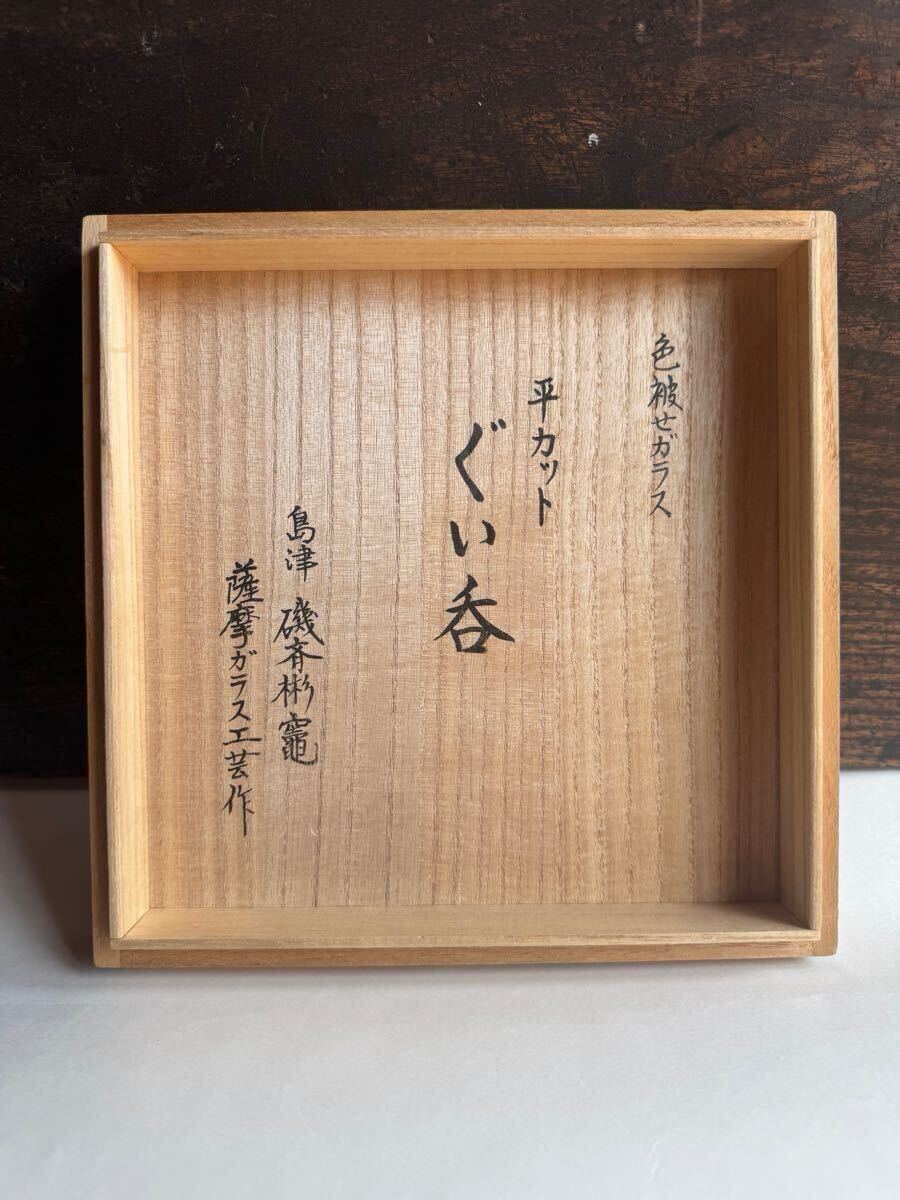 色被せガラス
平カット
ぐい呑
島津 磯斉彬竈
薩摩ガラス工芸作